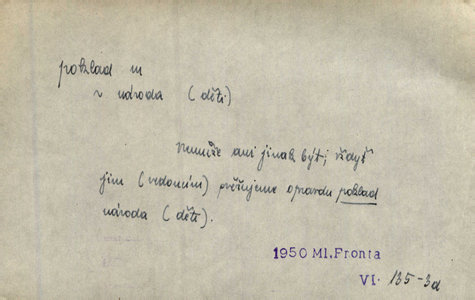 poklad m
~ národa (děti)
Nemůže ani jinak být; vždyť
jim (vedoucím) svěřujeme opravdu poklad
národa (děti).
1950 Ml.Fronta
VI. 135-3d